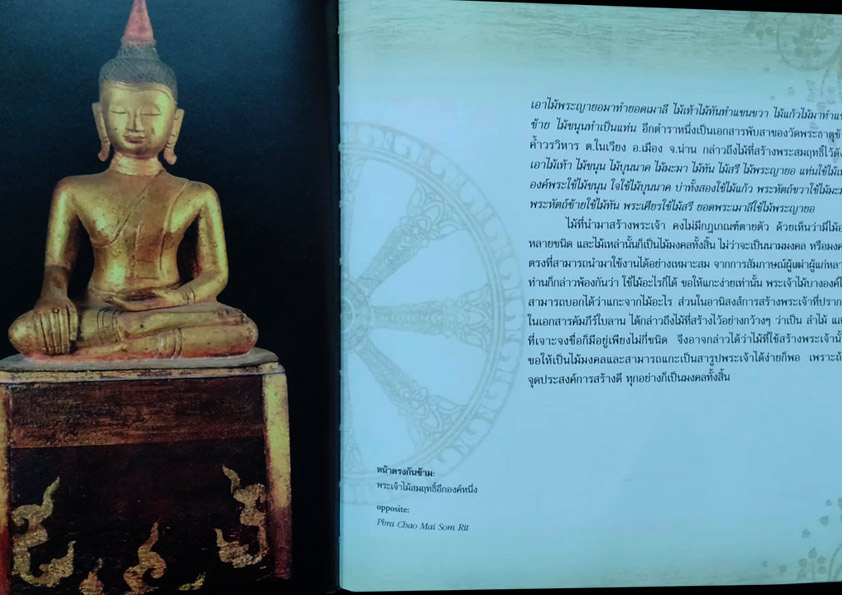 เอาไม้พระญายอมาทำยอดเมาลี ไม้เท้าไม้ทันทำแขนขวา ไม้แก้วไม้มาทำ
ซ้าย ไม้ขนุนทำเป็นแท่น อีกตำราหนึ่งเป็นเอกสารพับสาของวัดพระธาตุ
ค้ำวรวิหาร ต.ในเวียง อ.เมือง จ.น่าน กล่าวถึงไม้ที่สร้างพระสมฤทธิ์ไว้
เอาไม้เท้า ไม้ขนุน ไม้บุนนาค ไม้มะมา ไม้ทัน ไม้สรี ไม้พระญายอ แท่นใช้
องค์พระใช้ไม้ขนุน ใจใช้ไม้บุนนาค บ่าทั้งสองใช้ไม้แก้ว พระหัตถ์ขวาใช้
พระหัตถ์ซ้ายใช้ไม้ทัน พระเศียรใช้ไม้สรี ยอดพระเมาลีใช้ไม้พระญายอ
ไม้ที่นำมาสร้างพระเจ้า คงไม่มีกฎเกณฑ์ตายตัว ด้วยเห็นว่ามี
หลายชนิด และไม้เหล่านั้นก็เป็นไม้มงคลทั้งสิ้น ไม่ว่าจะเป็นนามมงคล หรือ
ตรงที่สามารถนำมาใช้งานได้อย่างเหมาะสม จากการสัมภาษณ์ผู้เฒ่าผู้แก่
ท่านก็กล่าวพ้องกันว่า ใช้ไม้อะไรก็ได้ ขอให้แกะง่ายเท่านั้น พระเจ้าไม้บางองค์
สามารถบอกได้ว่าแกะจากไม้อะไร ส่วนในอานิสงส์การสร้างพระเจ้าที่
ในเอกสารคัมภีร์ใบลาน ได้กล่าวถึงไม้ที่สร้างไว้อย่างกว้างๆ ว่าเป็น ลำไม้
ที่เจาะจงชื่อก็มีอยู่เพียงไม่กี่ชนิด จึงอาจกล่าวได้ว่าไม้ที่ใช้สร้างพระเจ้า
ขอให้เป็นไม้มงคลและสามารถแกะเป็นสารูปพระเจ้าได้ง่ายก็พอ เพราะ
จุดประสงค์การสร้างดี ทุกอย่างก็เป็นมงคลทั้งสิ้น
หน้าตรงกันข้าม:
พระเจ้าไม้สมฤทธิ์อีกองค์หนึ่ง
opposite:
Phra Chao Mai Som Rit